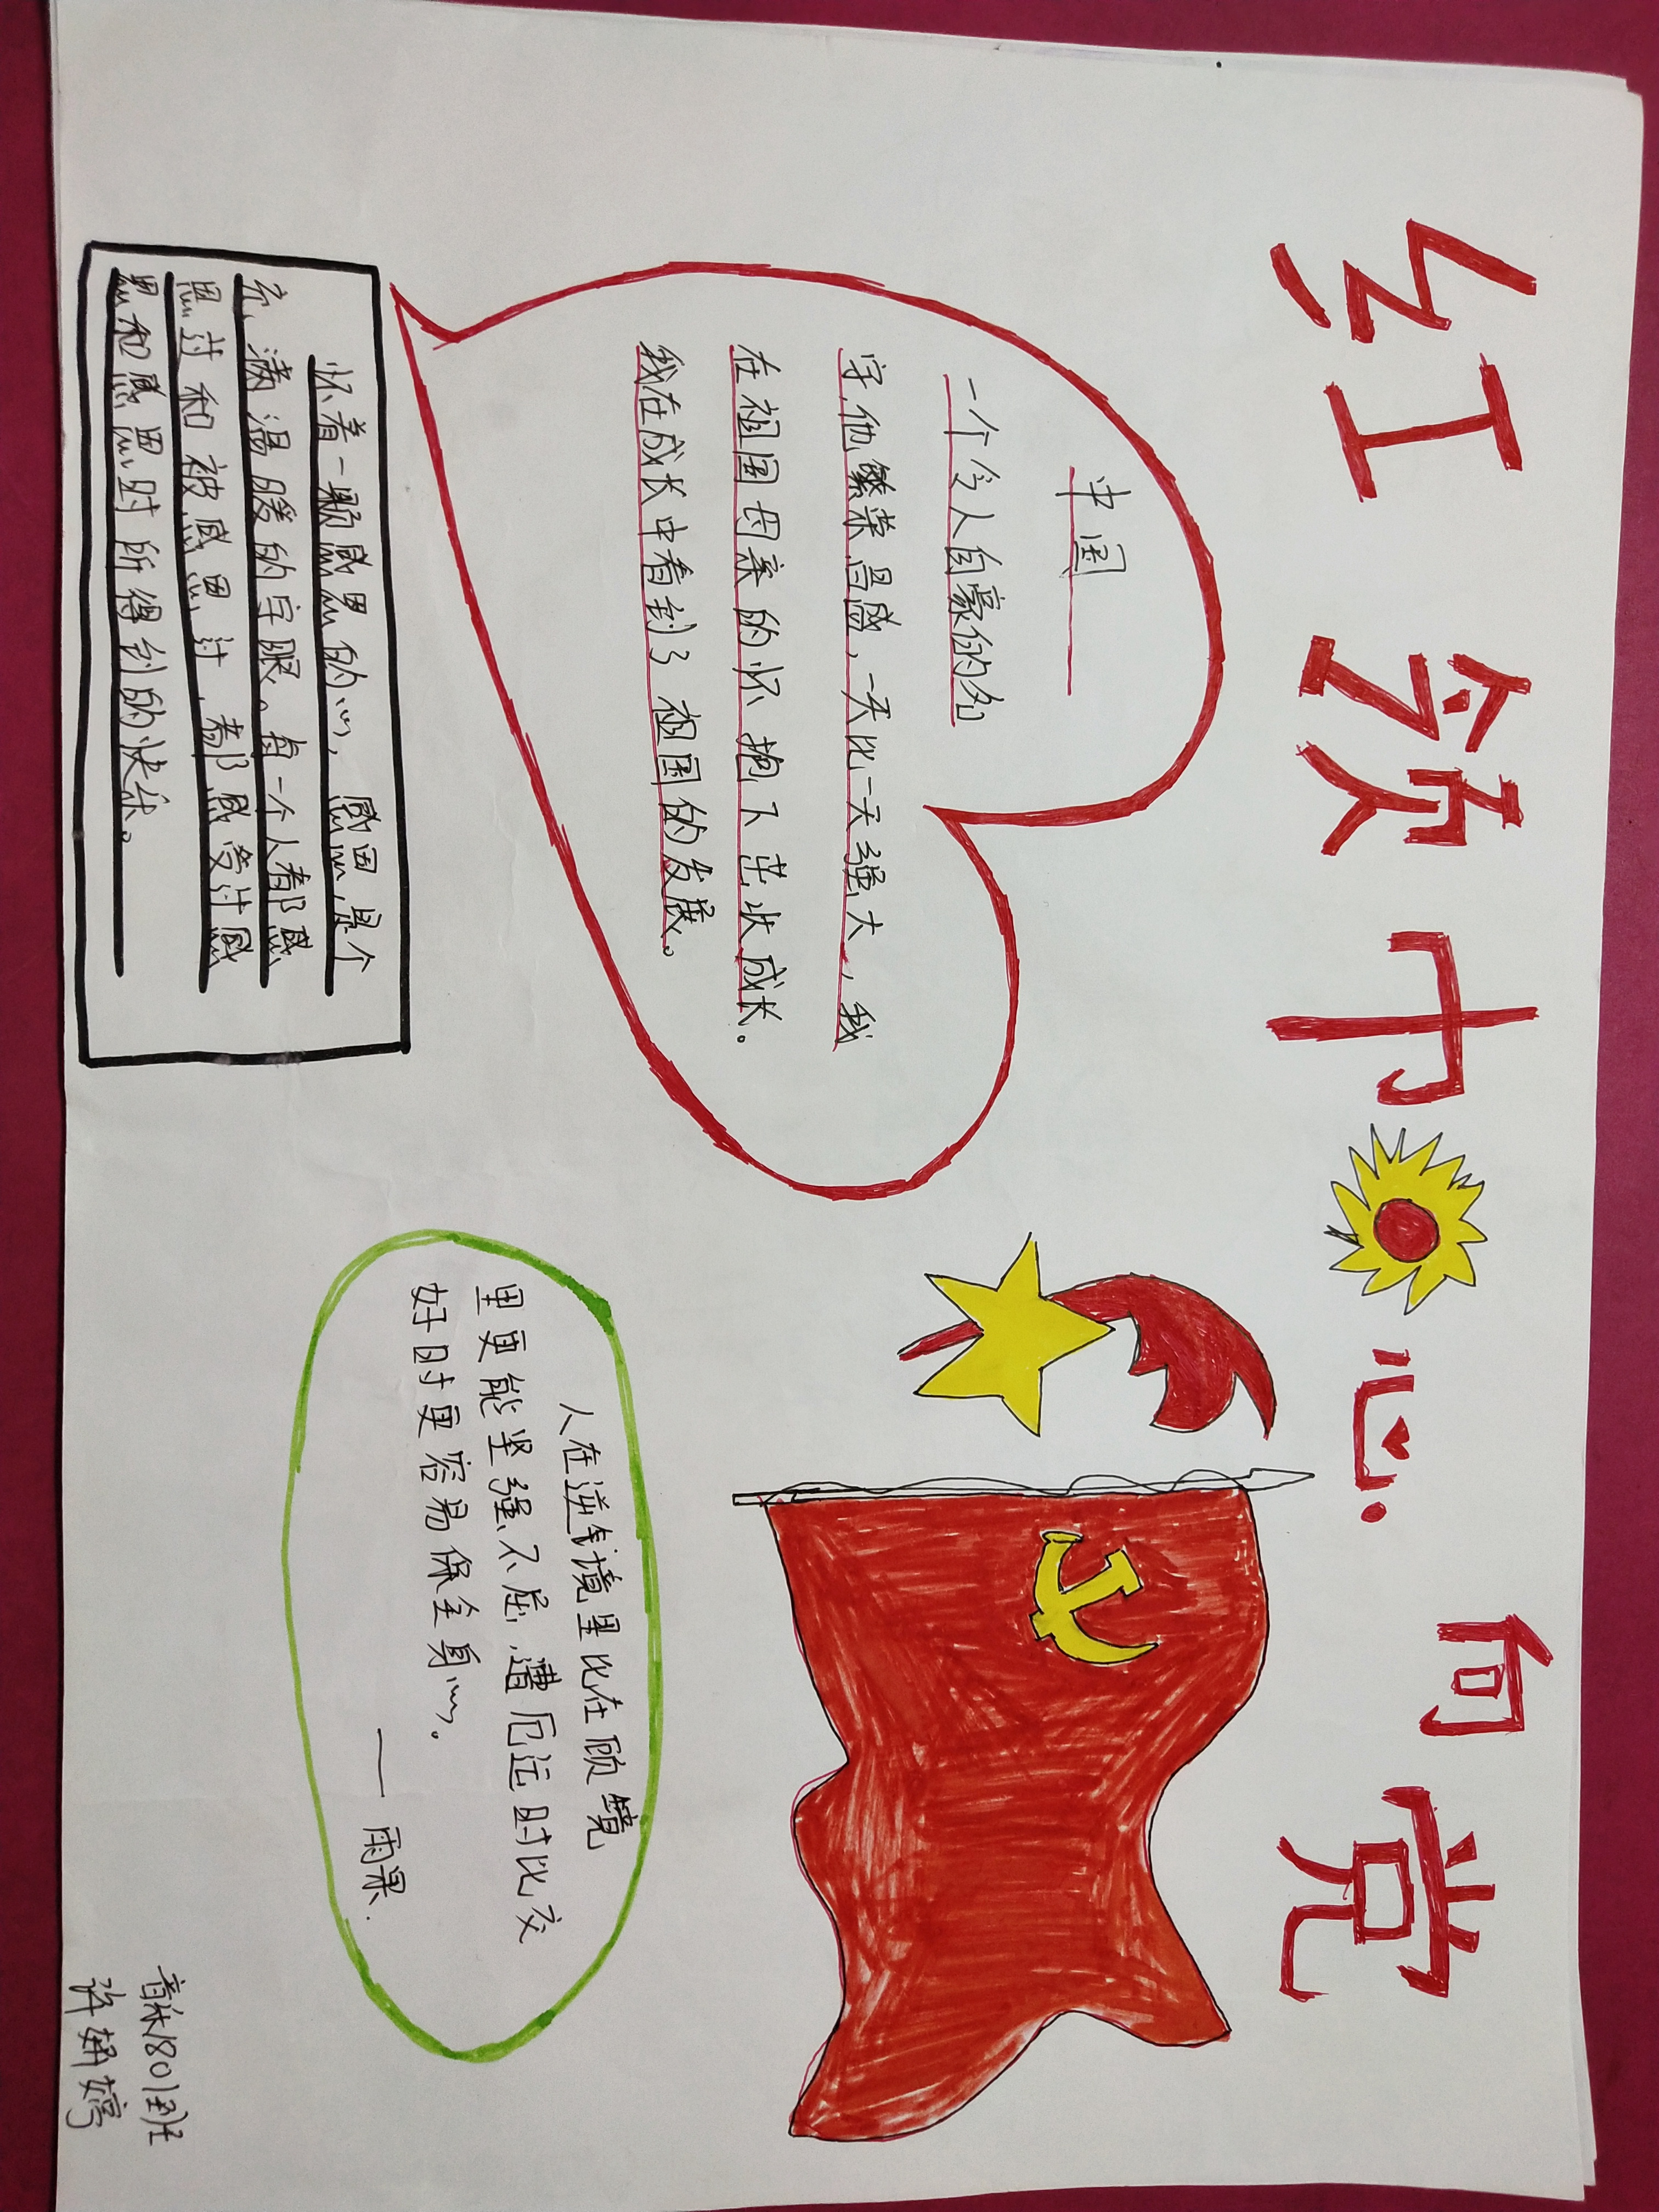 红领巾心向党
中国
一个令人自豪的名
字,他繁荣昌盛,一天比一天强大,我
在祖国母亲的怀抱下茁壮成长。
我在成长中看到了祖国的发展。
怀着一颗感恩的心,感恩是个
充满温暖的字眼。每一个人都感
恩过和被感恩过,都感受过感
恩和感恩时所得到的快乐。
人在逆境里比在顺境
里更能坚强不屈,遭厄运时比交
好时更容易保全身心。
——雨果.
1801班
许娉婷